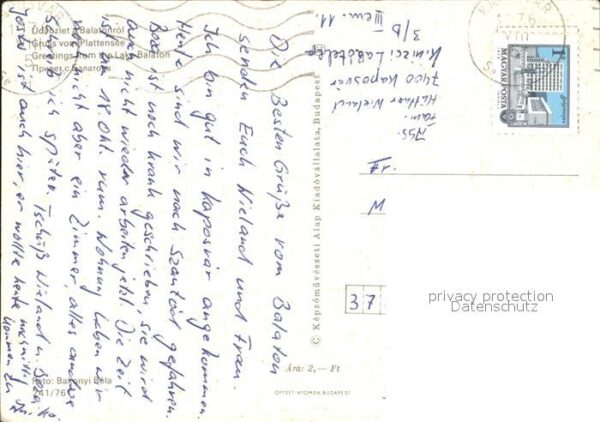 Üdvözlet a Balatonról
Gruss vom Plattensee
Greetings from the Lake Balaton
Привет с Балатона
Die Besten Grüße vom Balaton
senden Euch Wieland und Frau.
Ich bin gut in Kaposvár angekommen.
Heute sind wir nach Szántód gefahren.
ist noch krank geschrieben, sie wird
auch nicht wieder arbeiten jetzt. Die Zeit
ist am 18. Okt. rum. Wohnung haben wir
noch nicht aber ein Zimmer, alles andere
später. Tschüß Wieland u.
ist auch hier, er wollte heute
kommen
Foto: Baranyi Béla
741/76
© Képzőművészeti Alap Kiadóvállalata, Budapest
Abs:
Fam.
Hüttner Wieland
7400 Kaposvár
3/b -
III em. 11.
MAGYAR POSTA
1 Ft
W
37
Ára: 2,— Ft
OFFSET-NYOMDA BUDAPEST
privacy protection
Datenschutz